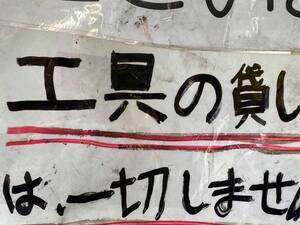 工具の貸し
は、一切しません